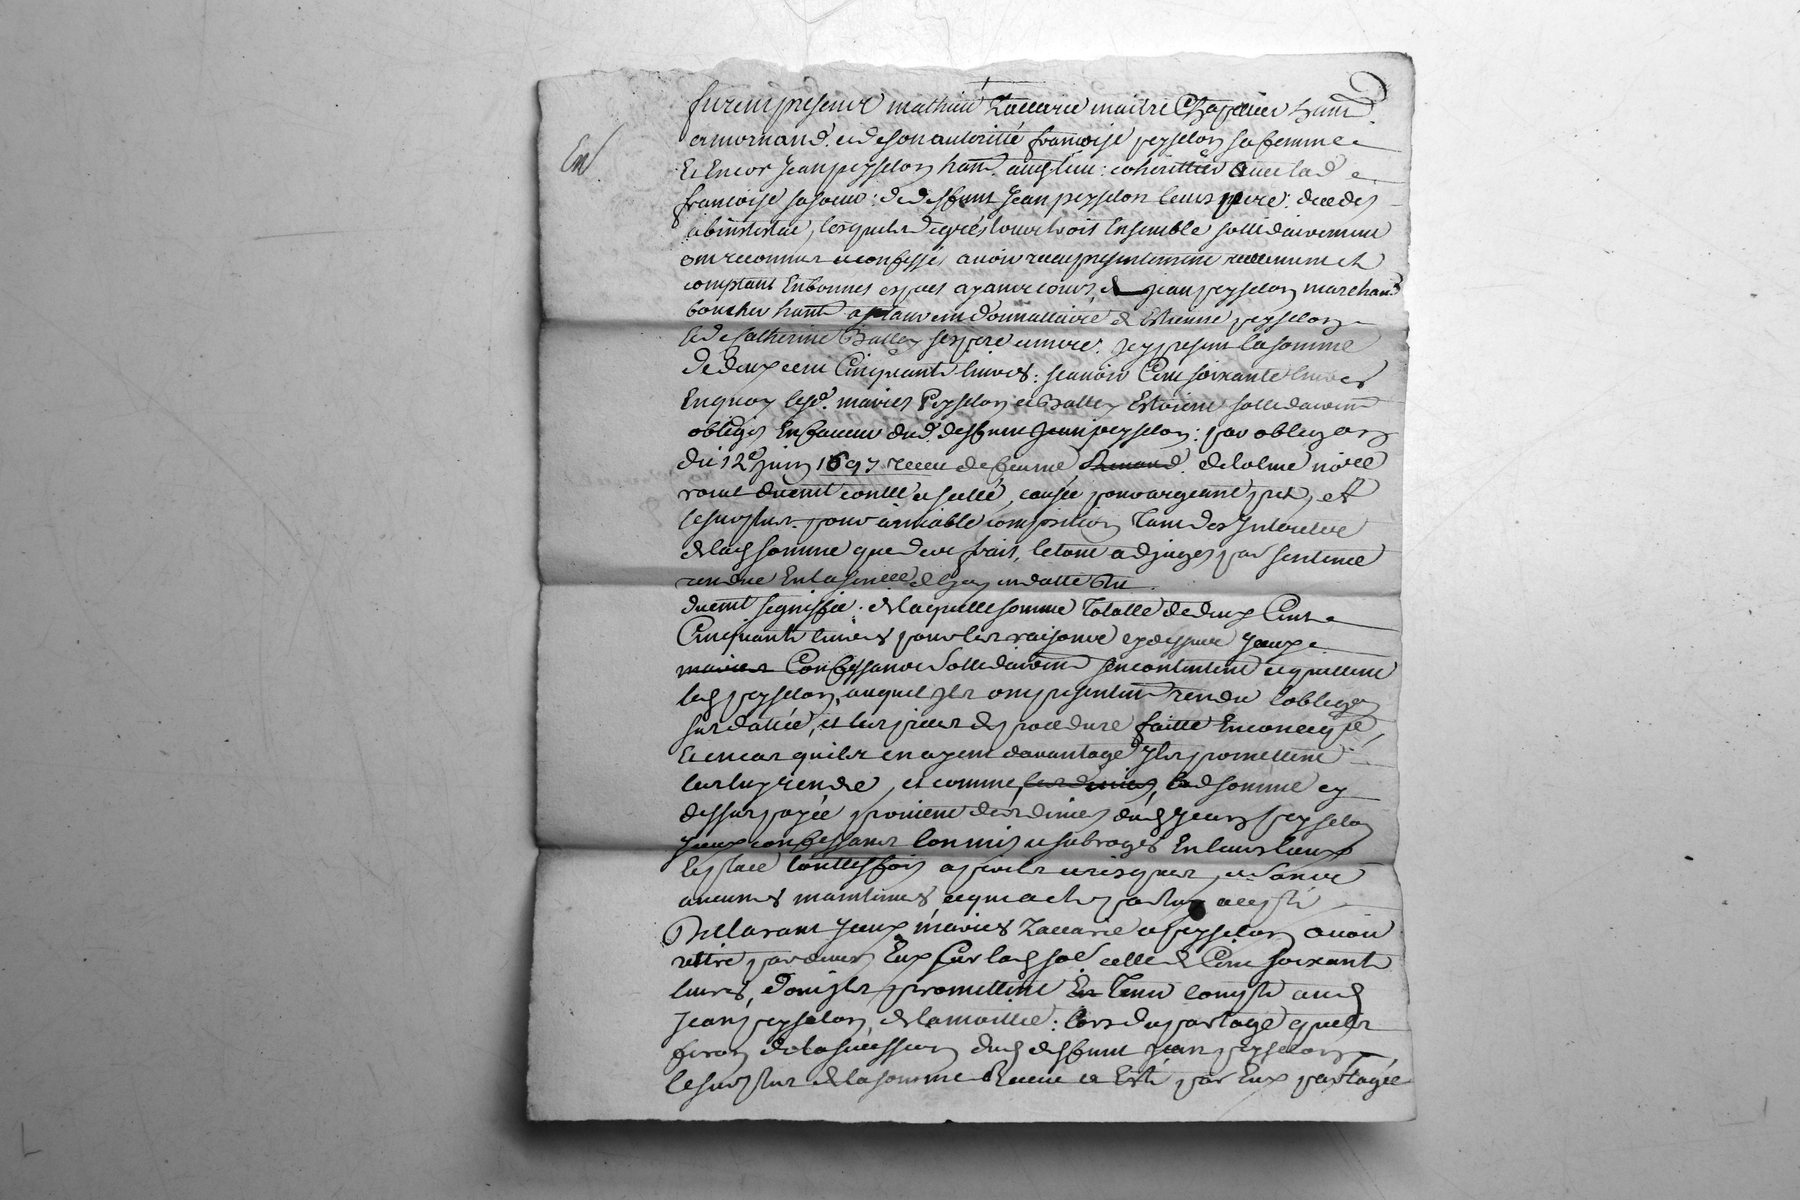 furent presents mathieu Zaccarie maitre Chapelier hant
a mornand. et de son autoritté françoise peysselon sa femme
En
Et Encor Jean peysselon hant. auds lieu : cohérittiers avec lad
françoise sa soeur : de deffunt Jean peysselon leurs pere : decedes
abinstestac, lesquels de grés tous trois Ensemble sollidairement
ont reconneus et confessé avoir receu presentement reellement et
comptant En bonnes especes ayant cours, de Jean peysselon marchand
boucher hant. donnattaire de Estienne peysselon
et de Catherine Balley ses pere et mere. Icy present la somme
de deux cent Cinquante livres : scavoir Cent soixante livres
En quoy lesd. mariés Peysselon et Balley Estoient sollidairemt
obligés En faveur dud. deffunt Jean peysselon : par obligaon
du 12e juin 1697 receu de feu me de lolme nore
royal duemt contlé et scellé, causée pour argent pret, et
le surplus pour amiable composition tant des Interets
de lads somme que des frais, le tout adjugés par sentence
rendue En la senecé de Lyon en datte du
duemt signiffié. de laquelle somme totalle de deux Cent
Cinquante livres pour les raisons cy dessus Iceux
mariés Confessants Sollidairemt se contentent et quittent
leds peysselon, auquel Ils ont presentemt rendu l'obligaon
sus dattée, et les pieces de procedure faitte En consequence,
Et en cas quils en ayent davantage Ils promettent
les luy rendre, et comme les deniers, lad somme cy
dessus payée provient des deniers duds Jean peysselon
Iceux confessants l'on mis et subrogés En leurs lieux
Et place touttesfois a ses perils et risques, et sans
aucunes maintenues ce qui a esté par luy accepté
Declarant Iceux mariés Zaccarie et peysselon avoir
retiré par devers Eux sur lads so.e celle de Cent soixante
livres, dont Ils promettent En tenir compte auds
Jean peysselon, de la moittié : lors du partage quils
feront de la succession duds deffunt Jean peysselon
le surplus de la somme Receue a Esté par Eux partagée